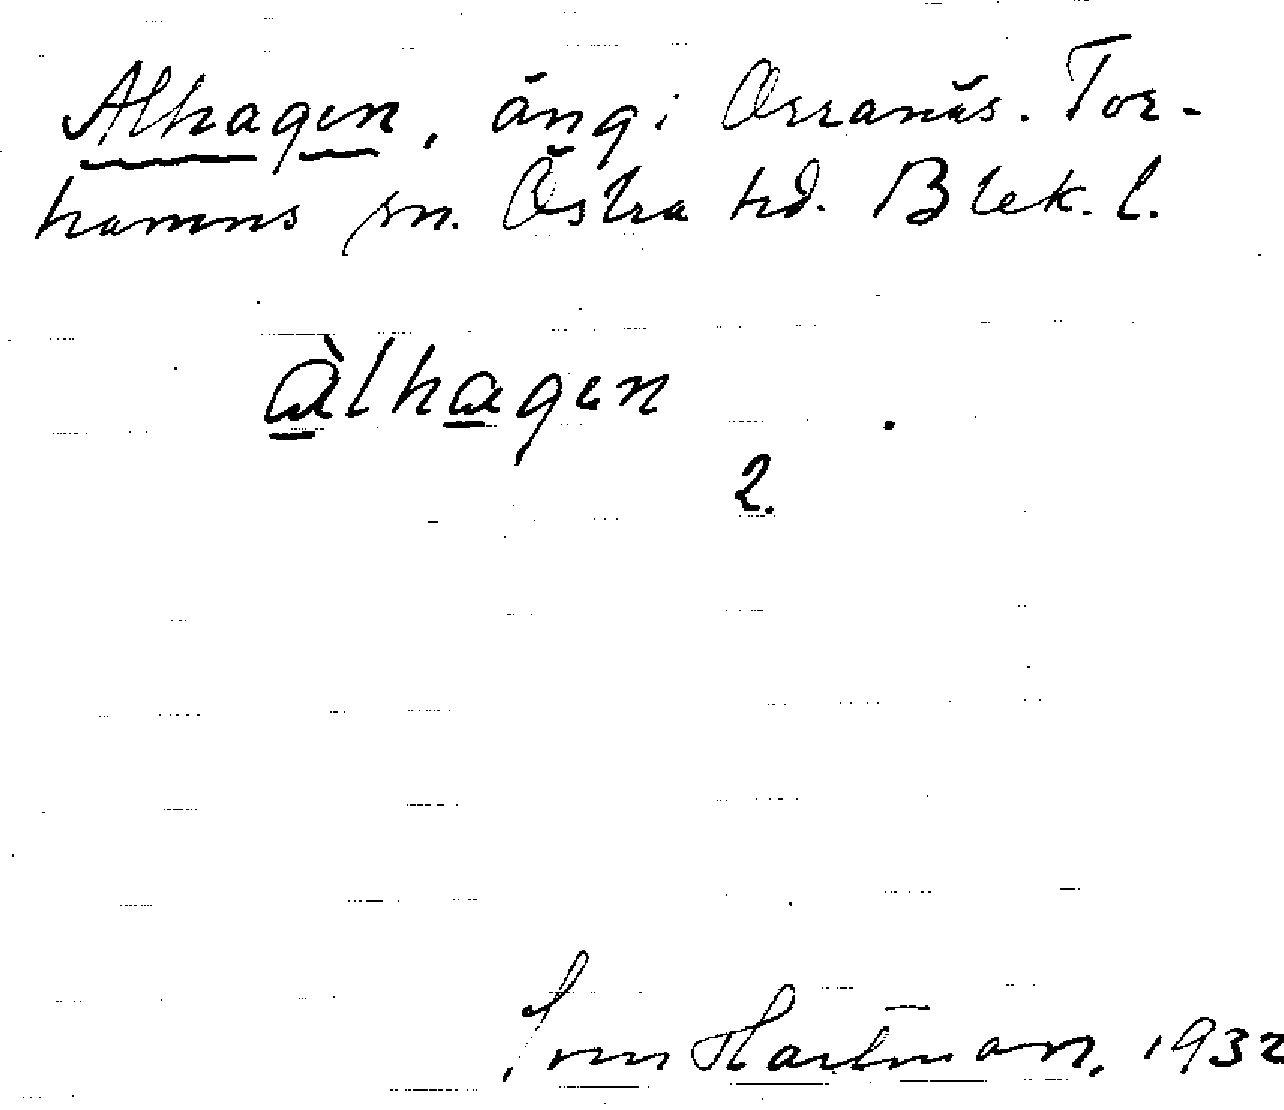 Alhagen, äng i Orranäs. Tor-
hamns sn. Östra hd. Blek. l.
àlhagen
2.
Sven Hartman, 1932